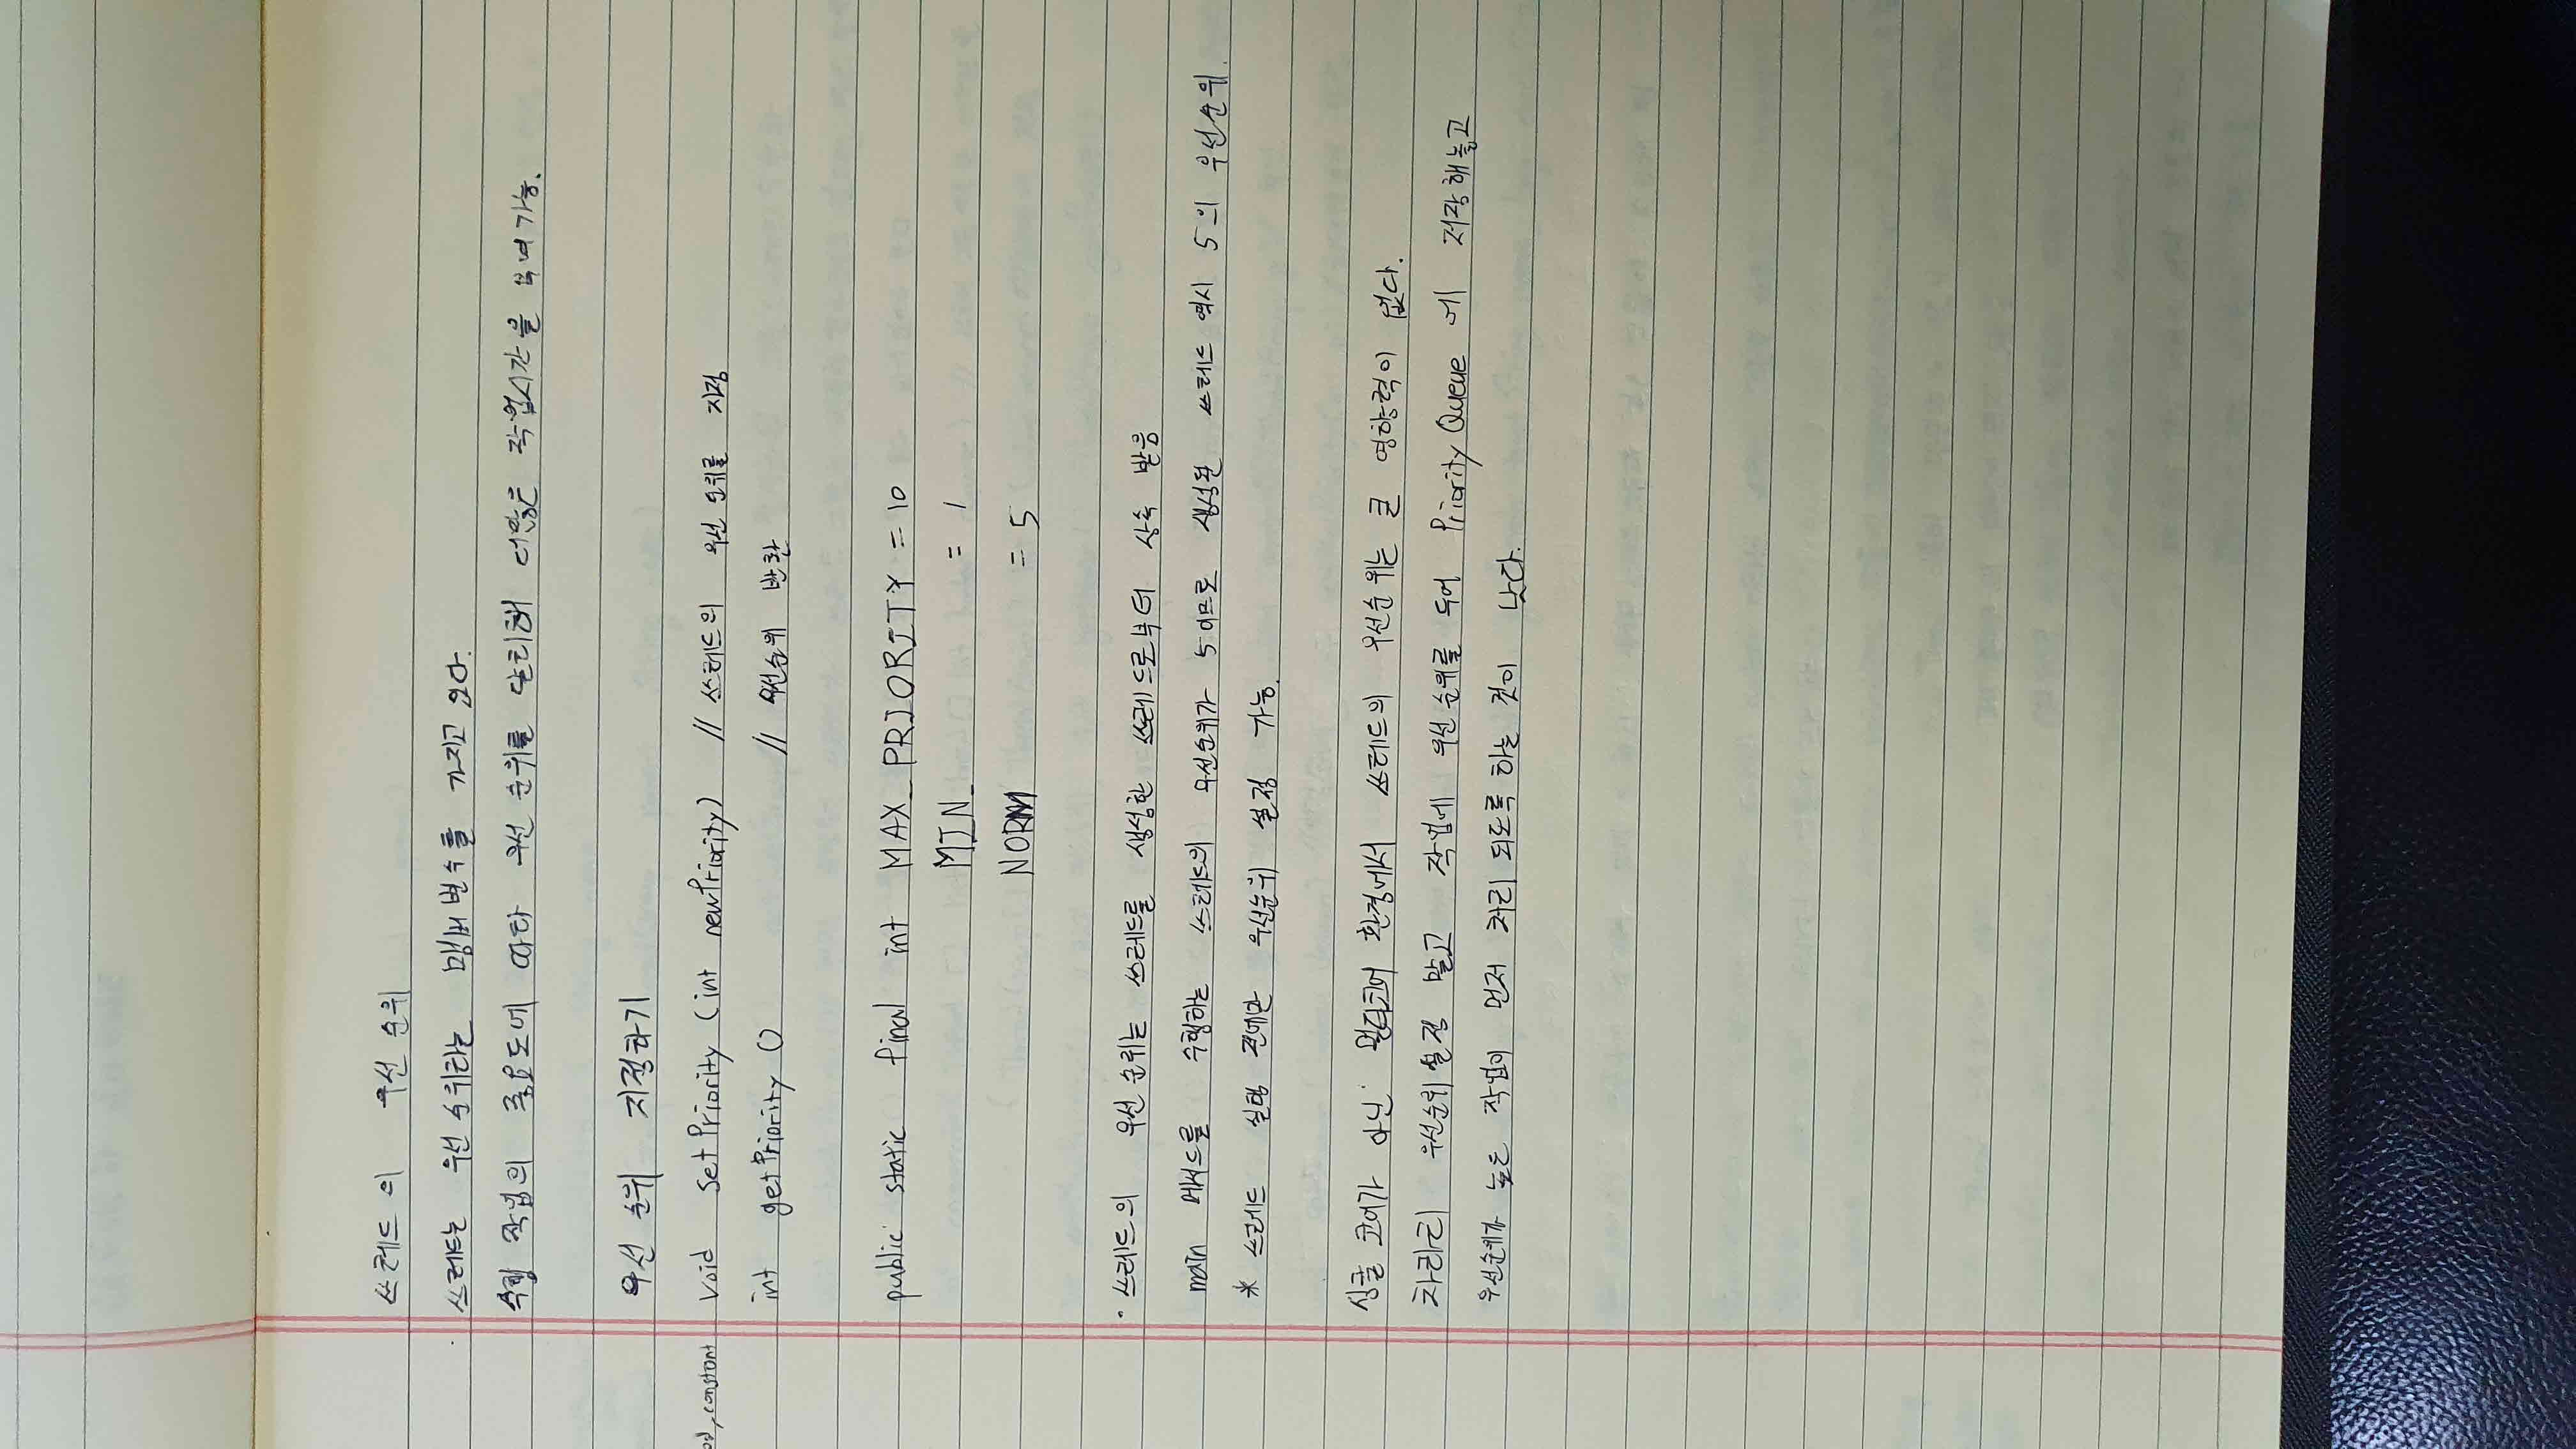 쓰레드의 우선 순위
쓰레드는 우선 순위라는 맴버변수를 가지고 있다.
수행 작업의 중요도에 따라 우선 순위를 달리해 더많은 작업시간을 부여가능.
우선 순위 지정하기
constant void setPriority (int newPriority) // 쓰레드의 우선 순위를 지정
int getPriority () // 우선순위 반환
public static final int MAX_PRIORITY = 10
MIN_ = 1
NORM = 5
· 쓰레드의 우선 순위는 쓰레드를 생성한 쓰레드로부터 상속 받음
main 메서드를 수행하는 쓰레드의 우선순위가 5이므로 생성된 쓰레드 역시 5의 우선순위.
* 쓰레드 실행 전에만 우선순위 설정 가능.
싱글 코어가 아닌 멀티코어 환경에서 쓰레드의 우선순위는 큰 영향력이 없다.
차라리 우선순위 설정 말고 작업에 우선 순위를 두어 Priority Queue 에 저장해놓고
우선순위가 높은 작업이 먼저 처리 되도록 하는 것이 낫다.